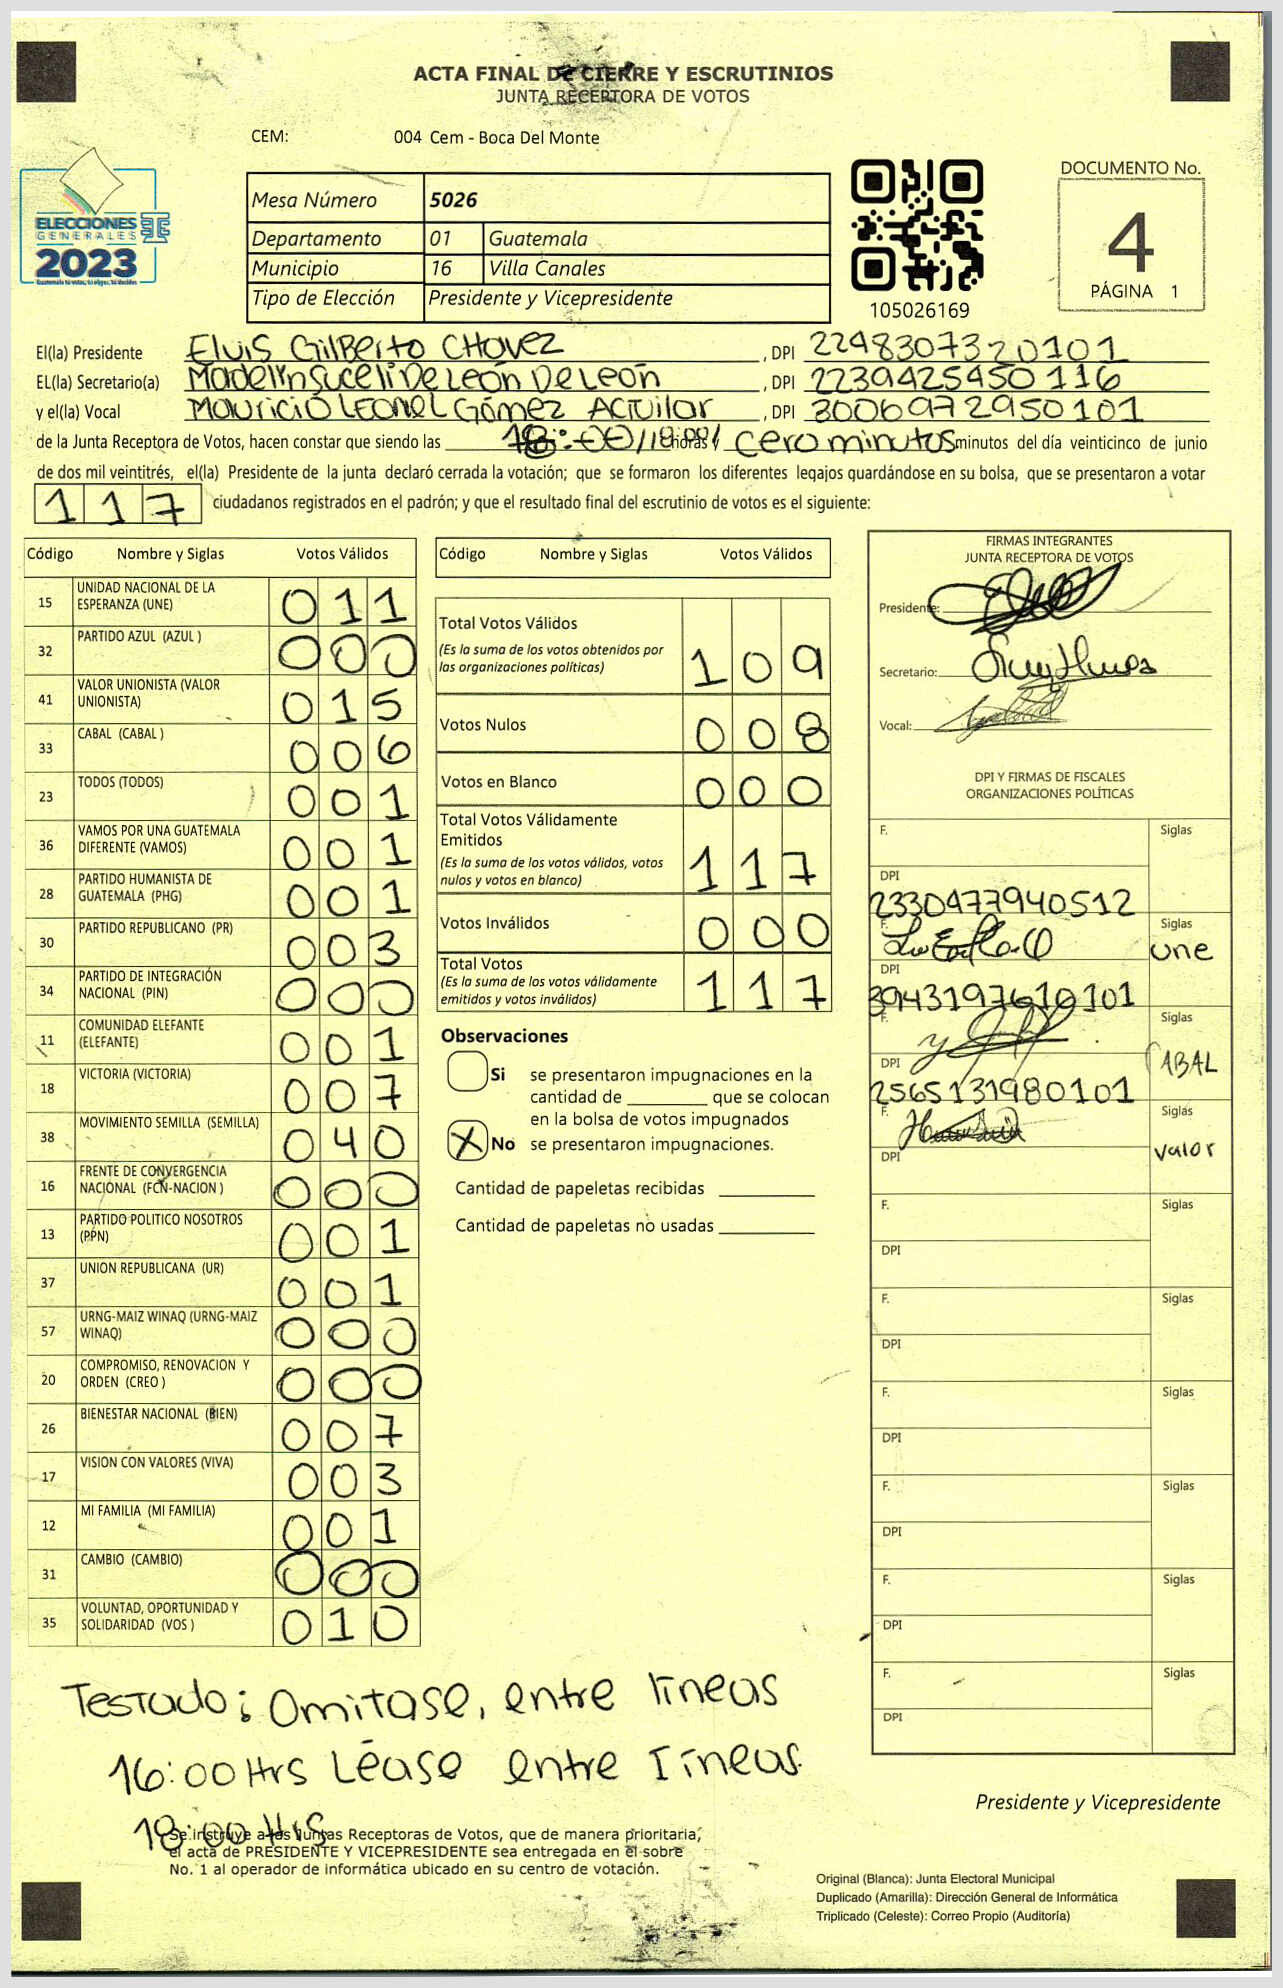 ACTA FINAL DE CIERRE Y ESCRUTINIOS
JUNTA RECEPTORA DE VOTOS
CEM: 004 Cem - Boca Del Monte
ELECCIONES
GENERALES
2023
Mesa Número 5026
Departamento 01 Guatemala
Municipio 16 Villa Canales
Tipo de Elección Presidente y Vicepresidente
105026169
DOCUMENTO No.
4
PÁGINA 1
El(la) Presidente Elvis Gilberto Chavez, DPI 2248307320101
EL(la) Secretario(a) Madelin Suceli De León De León, DPI 2239425450116
y el(la) Vocal Mauricio Leonel Gómez Aguilar, DPI 3006972950101
de la Junta Receptora de Votos, hacen constar que siendo las 18:00 horas y cero minutos minutos del día veinticinco de junio
de dos mil veintitrés, el(la) Presidente de la junta declaró cerrada la votación; que se formaron los diferentes legajos guardándose en su bolsa, que se presentaron a votar
117 ciudadanos registrados en el padrón; y que el resultado final del escrutinio de votos es el siguiente:
Código Nombre y Siglas Votos Válidos
15 UNIDAD NACIONAL DE LA ESPERANZA (UNE) 011
32 PARTIDO AZUL (AZUL ) 000
41 VALOR UNIONISTA (VALOR UNIONISTA) 015
33 CABAL (CABAL ) 006
23 TODOS (TODOS) 001
36 VAMOS POR UNA GUATEMALA DIFERENTE (VAMOS) 001
28 PARTIDO HUMANISTA DE GUATEMALA (PHG) 001
30 PARTIDO REPUBLICANO (PR) 003
34 PARTIDO DE INTEGRACIÓN NACIONAL (PIN) 000
11 COMUNIDAD ELEFANTE (ELEFANTE) 001
18 VICTORIA (VICTORIA) 007
38 MOVIMIENTO SEMILLA (SEMILLA) 040
16 FRENTE DE CONVERGENCIA NACIONAL (FCN-NACION ) 000
13 PARTIDO POLITICO NOSOTROS (PPN) 001
37 UNION REPUBLICANA (UR) 001
57 URNG-MAIZ WINAQ (URNG-MAIZ WINAQ) 000
20 COMPROMISO, RENOVACION Y ORDEN (CREO ) 000
26 BIENESTAR NACIONAL (BIEN) 007
17 VISION CON VALORES (VIVA) 003
12 MI FAMILIA (MI FAMILIA) 001
31 CAMBIO (CAMBIO) 000
35 VOLUNTAD, OPORTUNIDAD Y SOLIDARIDAD (VOS ) 010
Código Nombre y Siglas Votos Válidos
Total Votos Válidos 109
(Es la suma de los votos obtenidos por
las organizaciones políticas)
Votos Nulos 008
Votos en Blanco 000
Total Votos Válidamente
Emitidos 117
(Es la suma de los votos válidos, votos
nulos y votos en blanco)
Votos Inválidos 000
Total Votos 117
(Es la suma de los votos válidamente
emitidos y votos inválidos)
Observaciones
Si se presentaron impugnaciones en la
cantidad de ________ que se colocan
en la bolsa de votos impugnados
X No se presentaron impugnaciones.
Cantidad de papeletas recibidas
Cantidad de papeletas no usadas
FIRMAS INTEGRANTES
JUNTA RECEPTORA DE VOTOS
Presidente:
Secretario:
Vocal:
DPI Y FIRMAS DE FISCALES
ORGANIZACIONES POLÍTICAS
F. Siglas
DPI
2330477940512
F. Siglas
une
DPI
3943197610101
F. Siglas
CABAL
DPI
2565131980101
F. Siglas
valor
DPI
F. Siglas
DPI
F. Siglas
DPI
F. Siglas
DPI
F. Siglas
DPI
F. Siglas
DPI
F. Siglas
DPI
Testado: Omitase, entre líneas
16:00 Hrs Léase entre líneas.
18:00 Hrs
Se instruye a las Juntas Receptoras de Votos, que de manera prioritaria,
el acta de PRESIDENTE Y VICEPRESIDENTE sea entregada en el sobre
No. 1 al operador de informática ubicado en su centro de votación.
Presidente y Vicepresidente
Original (Blanca): Junta Electoral Municipal
Duplicado (Amarilla): Dirección General de Informática
Triplicado (Celeste): Correo Propio (Auditoría)